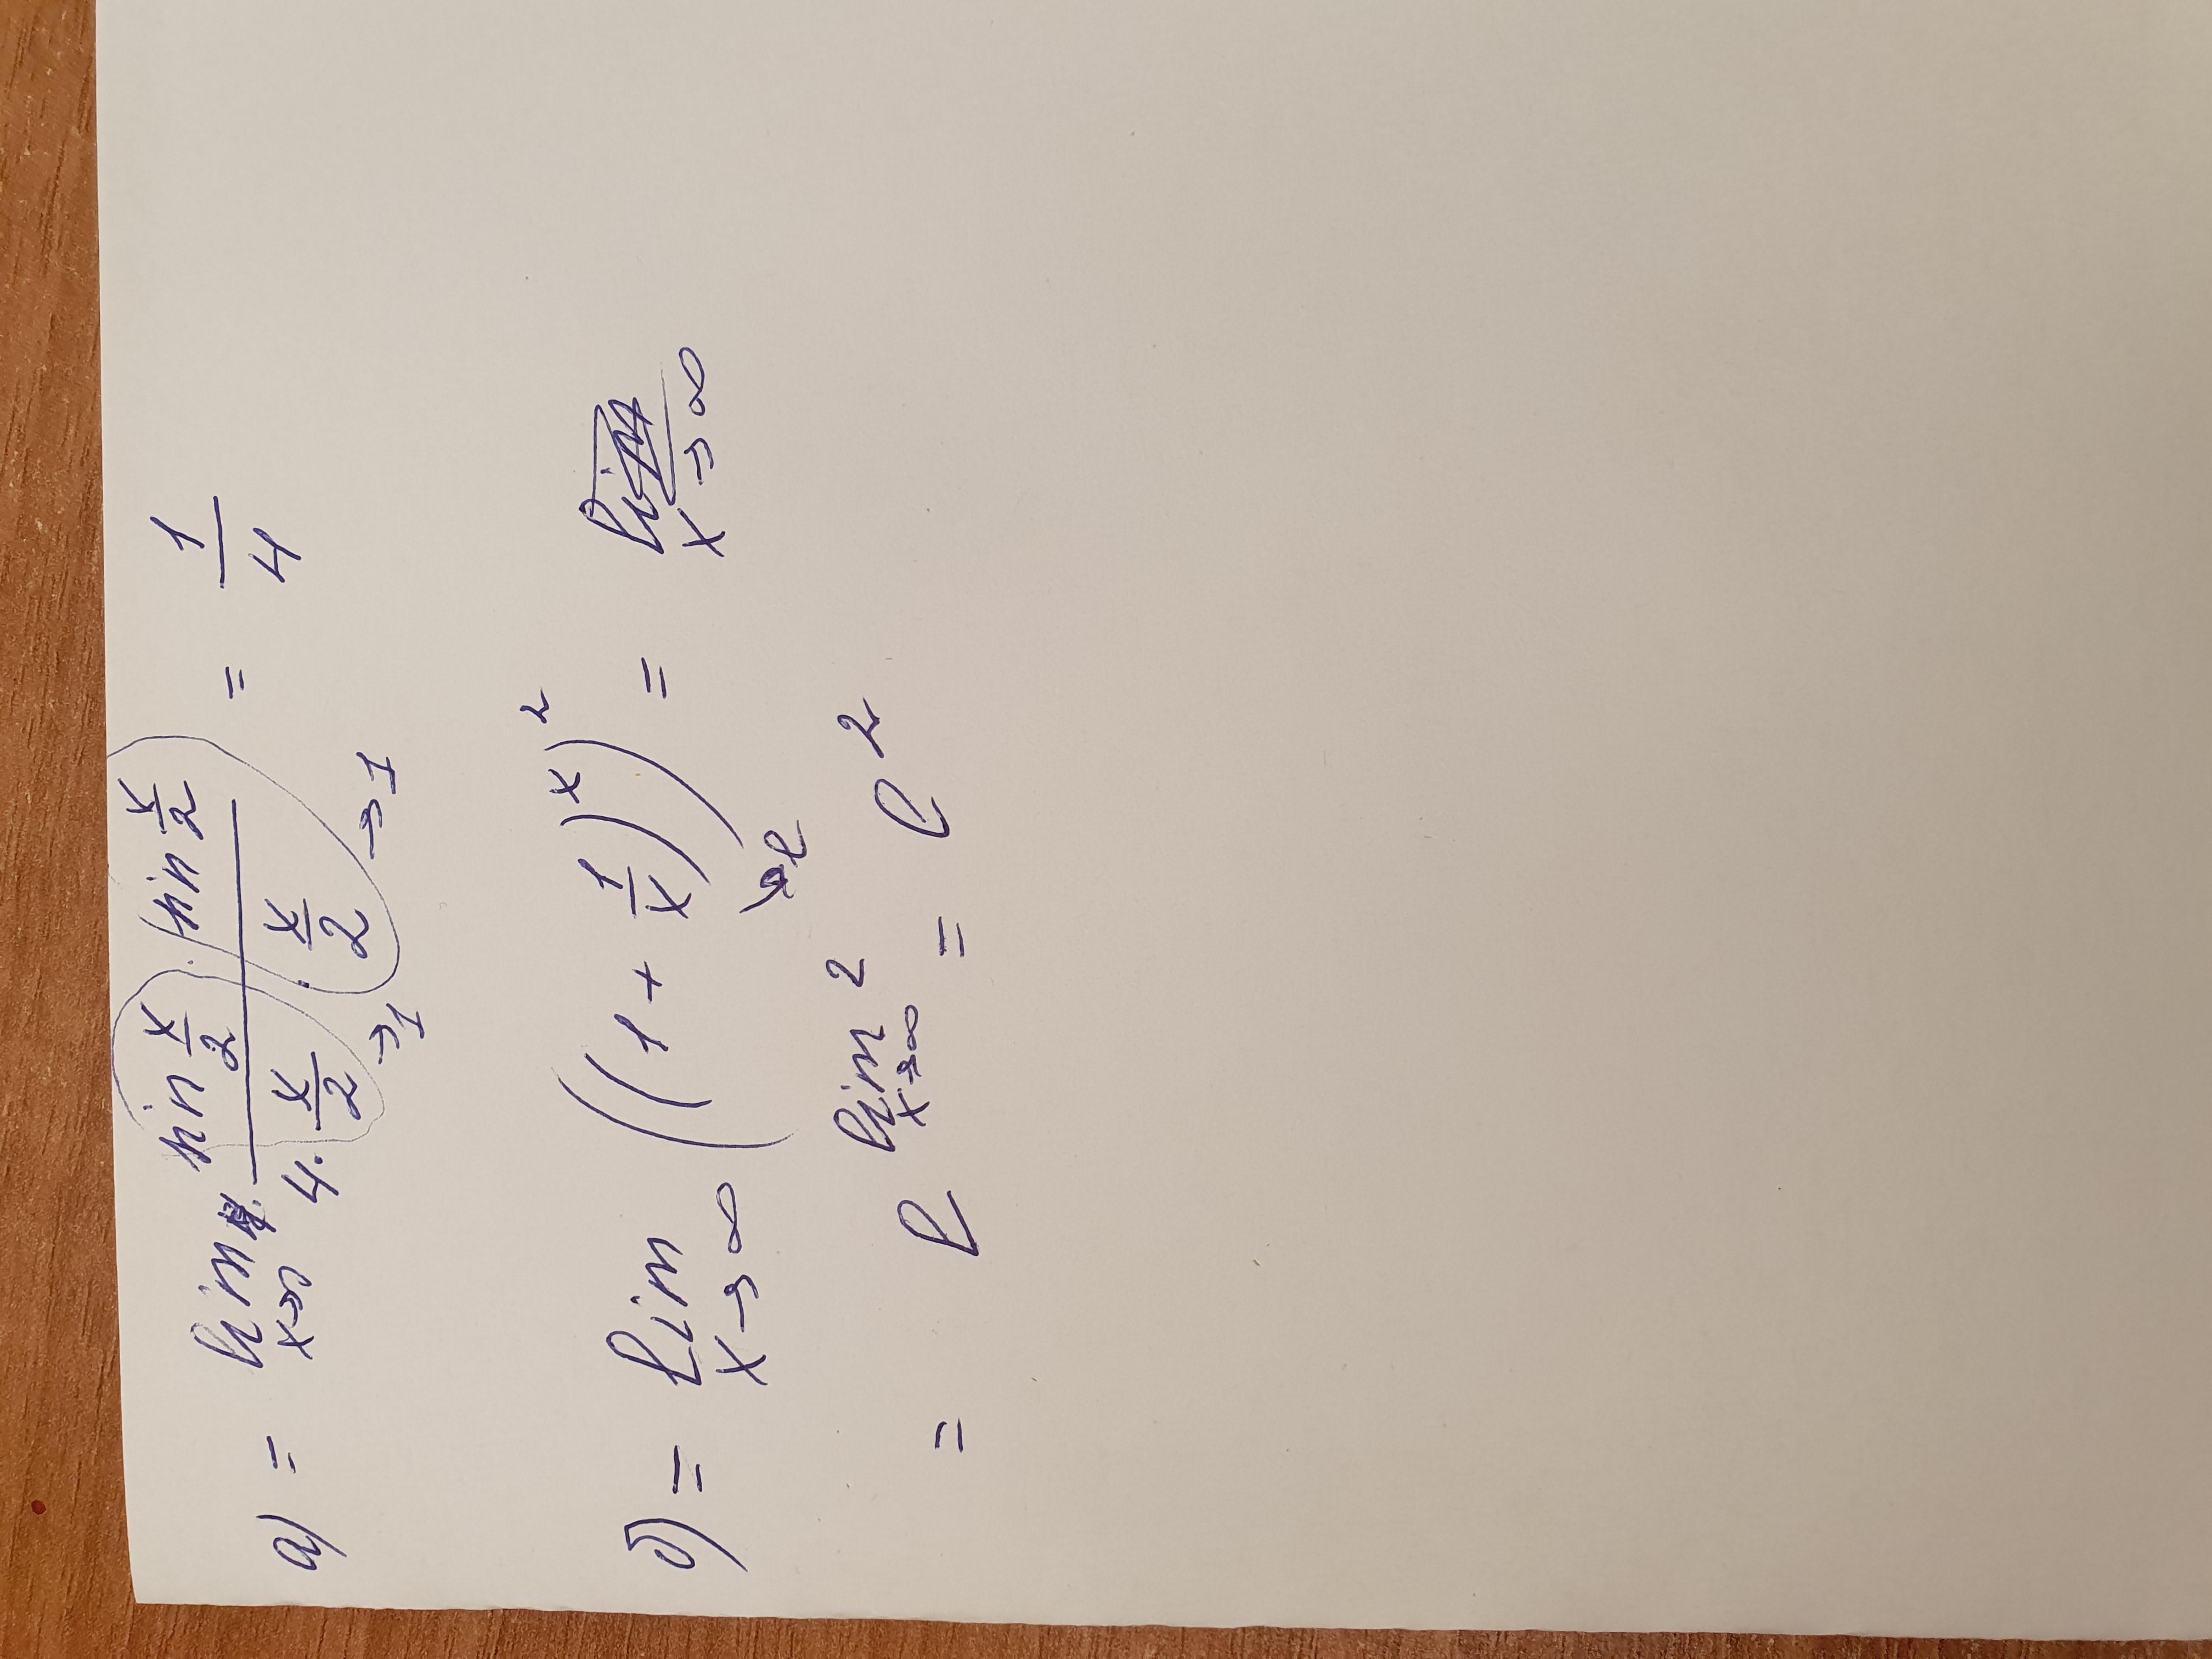 а) = lim x→0 (sin x/2 · sin x/2) / (4 · x/2 · x/2) = 1/4
→1 →1
б) = lim x→∞ ((1 + 1/x)^x)^2 = lim x→∞
→e
= e^(lim x→∞ 2) = e^2